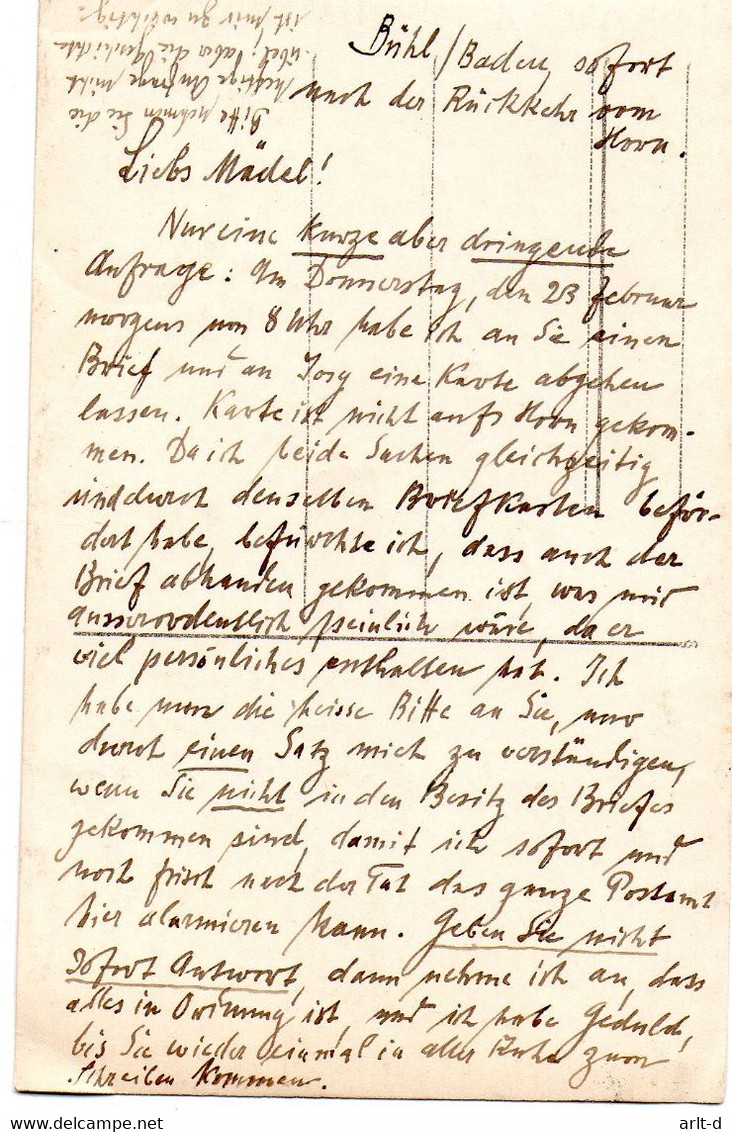 Bühl/Baden, sofort
nach der Rückkehr vom
Horn.
Liebs Mädel!
Nur eine kurze aber dringende
Anfrage: Am Donnerstag, den 23 Februar
morgens um 8 Uhr habe ich an Sie einen
Brief und an Josy eine Karte abgehen
lassen. Karte ist nicht aufs Horn gekom-
men. Da ich beide Sachen gleichzeitig
und durch denselben Briefkasten beför-
dert habe, befürchte ich, dass auch der
Brief abhanden gekommen ist, was mir
ausserordentlich peinlich wäre, da er
viel persönliches enthalten hat. Ich
habe nun die heisse Bitte an Sie, nur
durch einen Satz mich zu verständigen,
wenn Sie nicht in den Besitz des Briefes
gekommen sind, damit ich sofort und
noch frisch nach der Tat das ganze Postamt
hier alarmieren kann. Geben Sie nicht
sofort Antwort, dann nehme ich an, dass
alles in Ordnung ist, und ich habe Geduld,
bis Sie wieder einmal in aller Ruhe zum
Schreiben kommen.
Bitte nehmen Sie die
Anfrage nicht
übel; aber die Geschichte
ist mir zu wichtig.
arlt-d